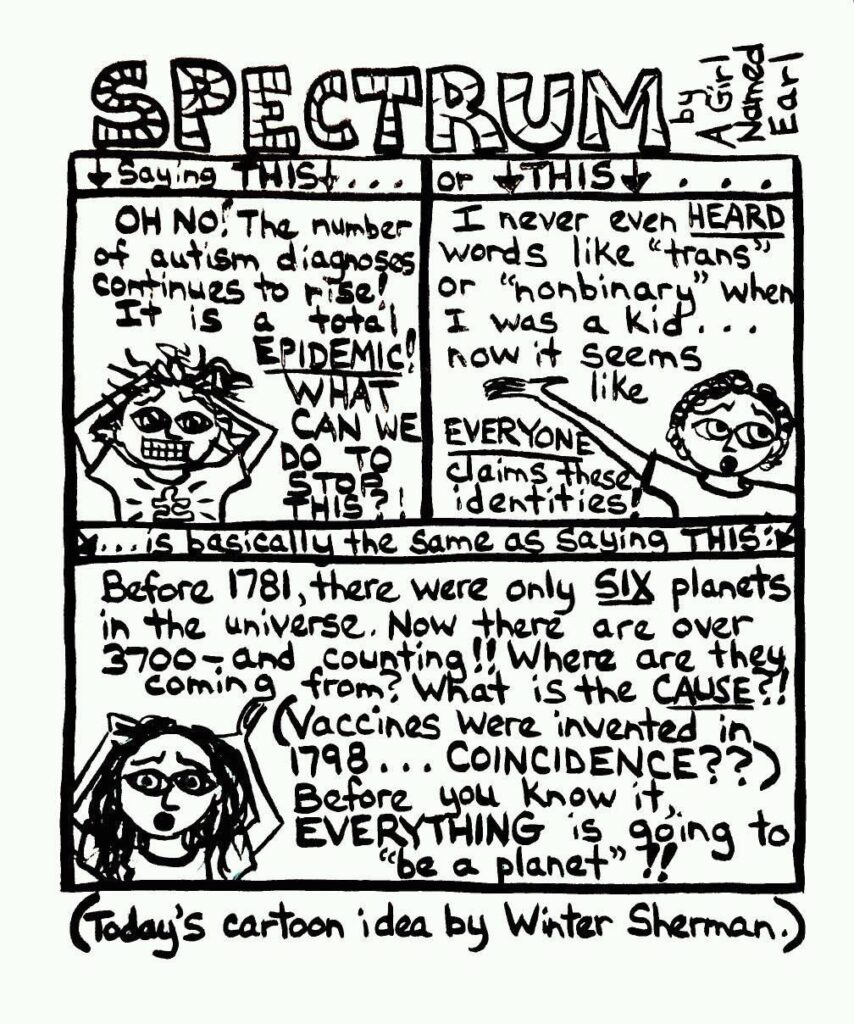 SPECTRUM
by
A Girl
Named
Earl
↓ Saying THIS ↓ . . .
or ↓ THIS ↓ . . . .
OH NO! The number
of autism diagnoses
continues to rise!
It is a total
EPIDEMIC!
WHAT
CAN WE
DO TO
STOP
THIS?!
I never even HEARD
words like "trans"
or "nonbinary" when
I was a kid...
now it seems
like
EVERYONE
claims these
identities!
...is basically the same as saying THIS:
Before 1781, there were only SIX planets
in the universe. Now there are over
3700 – and counting!! Where are they
coming from? What is the CAUSE?!
(Vaccines were invented in
1798... COINCIDENCE??)
Before you know it,
EVERYTHING is going to
"be a planet"!!
(Today's cartoon idea by Winter Sherman.)